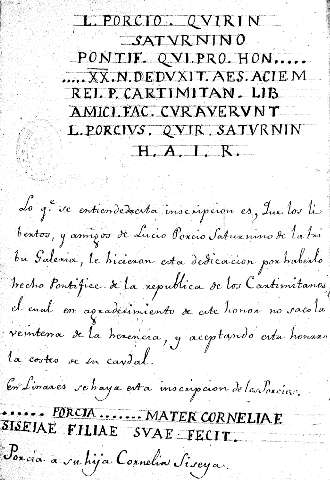 L. PORCIO. QVIRIN
SATVRNINO
PONTIF. QVI. PRO. HON.....
.....X̅X̅. N. DEDVXIT. AES. ACIEM
REI. P. CARTIMITAN. LIB
AMICI. FAC. CVRAVERVNT
L. PORCIVS. QVIR. SATVRNIN
H. A. I. R.
Lo q.e se entiende de esta inscripcion es, Que los li
bertos, y amigos de Lucio Porcio Saturnino de la tri
bu Galeria, le hicieron esta dedicacion por haberlo
hecho Pontifice de la republica de los Cartimitanos,
el cual en agradecimiento de este honor no saco la
veintena de la herencia, y aceptando esta honra
la costeo de su caudal.
En Linares se haya esta inscripcion de los Porcios.
...... PORCIA ....... MATER CORNELIAE
SISEIAE FILIAE SVAE FECIT.
Porcia a su hija Cornelia Siseya.